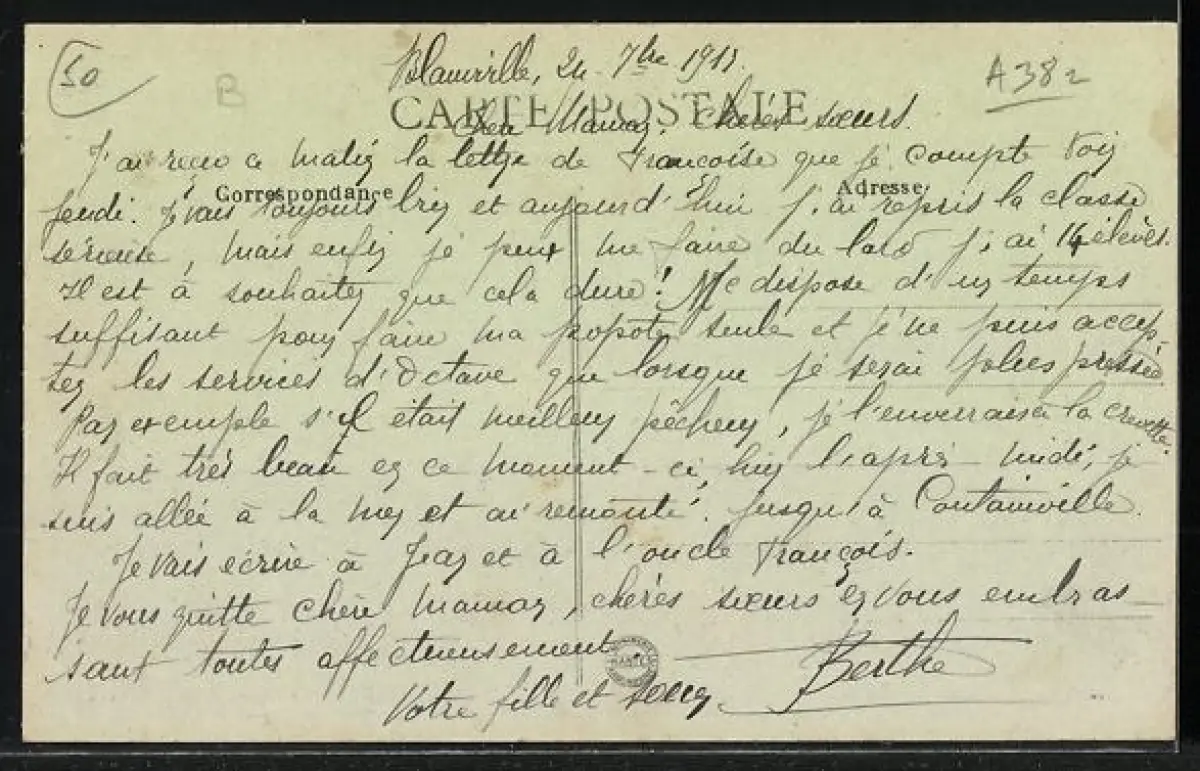 50
B
A382
Blainville, 24 7bre 1911.
CARTE POSTALE
Chère Maman, chères sœurs.
J'ai reçu ce matin la lettre de Françoise que je compte voir
Correspondance
Adresse
jeudi. Je vais toujours bien et aujourd'hui j'ai repris la classe
sérieuse, mais enfin je peux me faire du lard j'ai 14 élèves.
Il est à souhaiter que cela dure! Me dispose d'un temps
suffisant pour faire ma popote seule et je ne puis accep-
ter les services d'Octave que lorsque je serai pressée.
Par exemple s'il était meilleur pêcheur, je l'enverrais à la crevette.
Il fait très beau en ce moment-ci, hier l'après-midi, je
suis allée à la mer et ai remonté jusqu'à Coutainville.
Je vais écrire à Jean et à l'oncle François.
Je vous quitte chère Maman, chères sœurs en vous embras-
sant toutes affectueusement
Votre fille et sœur,
Berthe